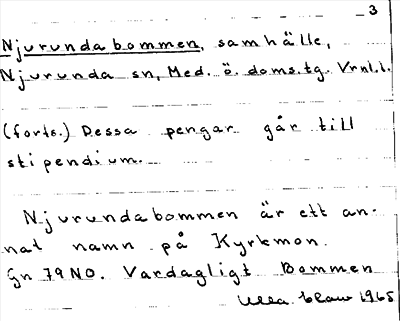 3
Njurundabommen, samhälle,
Njurunda sn, Med. ö. doms.tg. Vrnl.l.
(forts.) Dessa pengar går till
stipendium.
Njurundabommen är ett an-
nat namn på Kyrkmon.
Gn 79 NO. Vardagligt Bommen
Ulla 1965